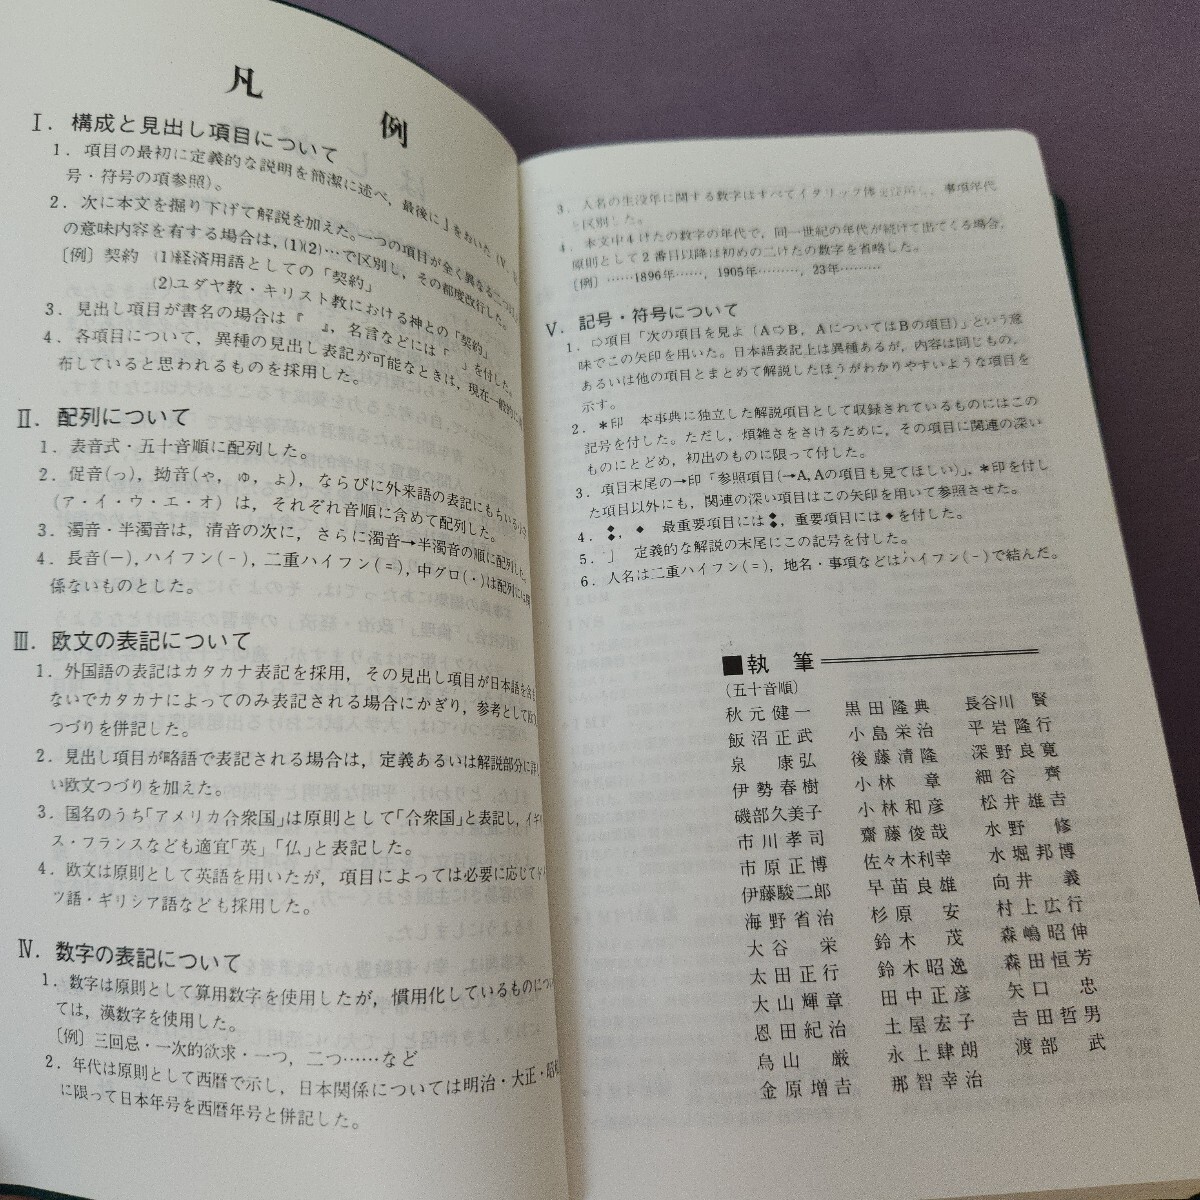 凡例
Ⅰ. 構成と見出し項目について
1. 項目の最初に定義的な説明を簡潔に述べ, 最後に」をおいた (Ⅴ.
号・符号の項参照)。
2. 次に本文を掘り下げて解説を加えた。一つの項目が全く異なる二つ
の意味内容を有する場合は, (1)(2)…で区別し, その都度改行した。
〔例〕契約 (1)経済用語としての「契約」
(2)ユダヤ教・キリスト教における神との「契約」
3. 見出し項目が書名の場合は『 』, 名言などには「 」を付した。
4. 各項目について, 異種の見出し表記が可能なときは, 現在一般的に
布していると思われるものを採用した。
Ⅱ. 配列について
1. 表音式・五十音順に配列した。
2. 促音(っ), 拗音(ゃ, ゅ, ょ), ならびに外来語の表記にもちいる
(ァ・ィ・ゥ・ェ・ォ) は, それぞれ音順に含めて配列した。
3. 濁音・半濁音は, 清音の次に, さらに濁音→半濁音の順に配列した。
4. 長音(ー), ハイフン(-), 二重ハイフン(=), 中グロ(・)は配列には
係ないものとした。
Ⅲ. 欧文の表記について
1. 外国語の表記はカタカナ表記を採用, その見出し項目が日本語を含ま
ないでカタカナによってのみ表記される場合にかぎり, 参考として
つづりを併記した。
2. 見出し項目が略語で表記される場合は, 定義あるいは解説部分に詳し
い欧文つづりを加えた。
3. 国名のうち「アメリカ合衆国」は原則として「合衆国」と表記し, イギリ
ス・フランスなども適宜「英」「仏」と表記した。
4. 欧文は原則として英語を用いたが, 項目によっては必要に応じてドイ
ツ語・ギリシア語なども採用した。
Ⅳ. 数字の表記について
1. 数字は原則として算用数字を使用したが, 慣用化しているものについ
ては, 漢数字を使用した。
〔例〕三回忌・一次的欲求・一つ, 二つ……など
2. 年代は原則として西暦で示し, 日本関係については明治・大正・昭和
に限って日本年号を西暦年号と併記した。
3. 人名の生没年に関する数字はすべてイタリック体を使用し, 事項年代
と区別した。
4. 本文中4けたの数字の年代で, 同一世紀の年代が続けて出てくる場合,
原則として2番目以降は初めの二けたの数字を省略した。
〔例〕……1896年……, 1905年………, 23年………
Ⅴ. 記号・符号について
1. ⇨項目「次の項目を見よ (A⇨B, AについてはBの項目)」という意
味でこの矢印を用いた。日本語表記上は異種あるが, 内容は同じもの,
あるいは他の項目とまとめて解説したほうがわかりやすいような項目を
示す。
2. *印 本事典に独立した解説項目として収録されているものにはこの
記号を付した。ただし, 煩雑さをさけるために, その項目に関連の深い
ものにとどめ, 初出のものに限って付した。
3. 項目末尾の→印「参照項目(→A, Aの項目も見てほしい)」, *印を付し
た項目以外にも, 関連の深い項目はこの矢印を用いて参照させた。
4. ◆◆, ◆ 最重要項目には◆◆, 重要項目には◆を付した。
5. 」 定義的な解説の末尾にこの記号を付した。
6. 人名は二重ハイフン(=), 地名・事項などはハイフン(-)で結んだ。
■執筆
(五十音順)
秋元健一 黒田隆典 長谷川賢
飯沼正武 小島栄治 平岩隆行
泉康弘 後藤清隆 深野良寛
伊勢春樹 小林章 細谷齊
磯部久美子 小林和彦 松井雄吉
市川孝司 齋藤俊哉 水野修
市原正博 佐々木利幸 水堀邦博
伊藤駿二郎 早苗良雄 向井義
海野省治 杉原安 村上広行
大谷栄 鈴木茂 森嶋昭伸
太田正行 鈴木昭逸 森田恒芳
大山輝章 田中正彦 矢口忠
恩田紀治 土屋宏子 吉田哲男
烏山厳 永上肆朗 渡部武
金原増吉 那智幸治